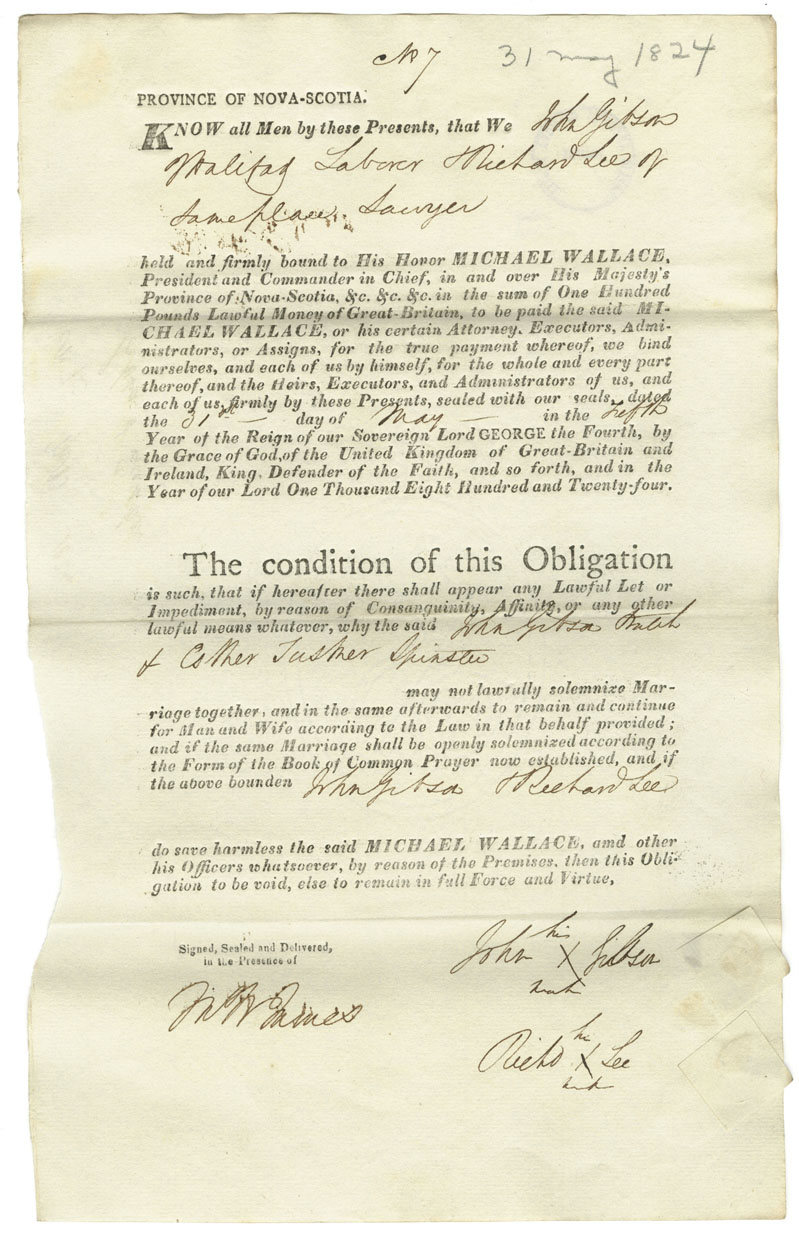 No 7
31 May 1824
PROVINCE OF NOVA-SCOTIA.
KNOW all Men by these Presents, that We John Gibson
of Halifax Laborer & Richard Lee of
Same place. Sawyer
held and firmly bound to His Honor MICHAEL WALLACE,
President and Commander in Chief, in and over His Majesty's
Province of Nova-Scotia, &c. &c. &c. in the sum of One Hundred
Pounds Lawful Money of Great-Britain, to be paid the said MI-
CHAEL WALLACE, or his certain Attorney, Executors, Admi-
nistrators, or Assigns, for the true payment whereof, we bind
ourselves, and each of us by himself, for the whole and every part
thereof, and the Heirs, Executors, and Administrators of us, and
each of us, firmly by these Presents, sealed with our seals, dated
the 31st day of May in the Fifth
Year of the Reign of our Sovereign Lord GEORGE the Fourth, by
the Grace of God, of the United Kingdom of Great-Britain and
Ireland, King, Defender of the Faith, and so forth, and in the
Year of our Lord One Thousand Eight Hundred and Twenty-four.
The condition of this Obligation
is such, that if hereafter there shall appear any Lawful Let or
Impediment, by reason of Consanguinity, Affinity, or any other
lawful means whatever, why the said John Gibson Batch
& Esther Tusker Spinster
may not lawfully solemnize Mar-
riage together, and in the same afterwards to remain and continue
for Man and Wife according to the Law in that behalf provided;
and if the same Marriage shall be openly solemnized according to
the Form of the Book of Common Prayer now established, and if
the above bounden John Gibson & Richard Lee
do save harmless the said MICHAEL WALLACE, amd other
his Officers whatsoever, by reason of the Premises, then this Obli-
gation to be void, else to remain in full Force and Virtue,
Signed, Sealed and Delivered,
in the Presence of
his
John X Gibson
mark
James
his
Richd X Lee
mark